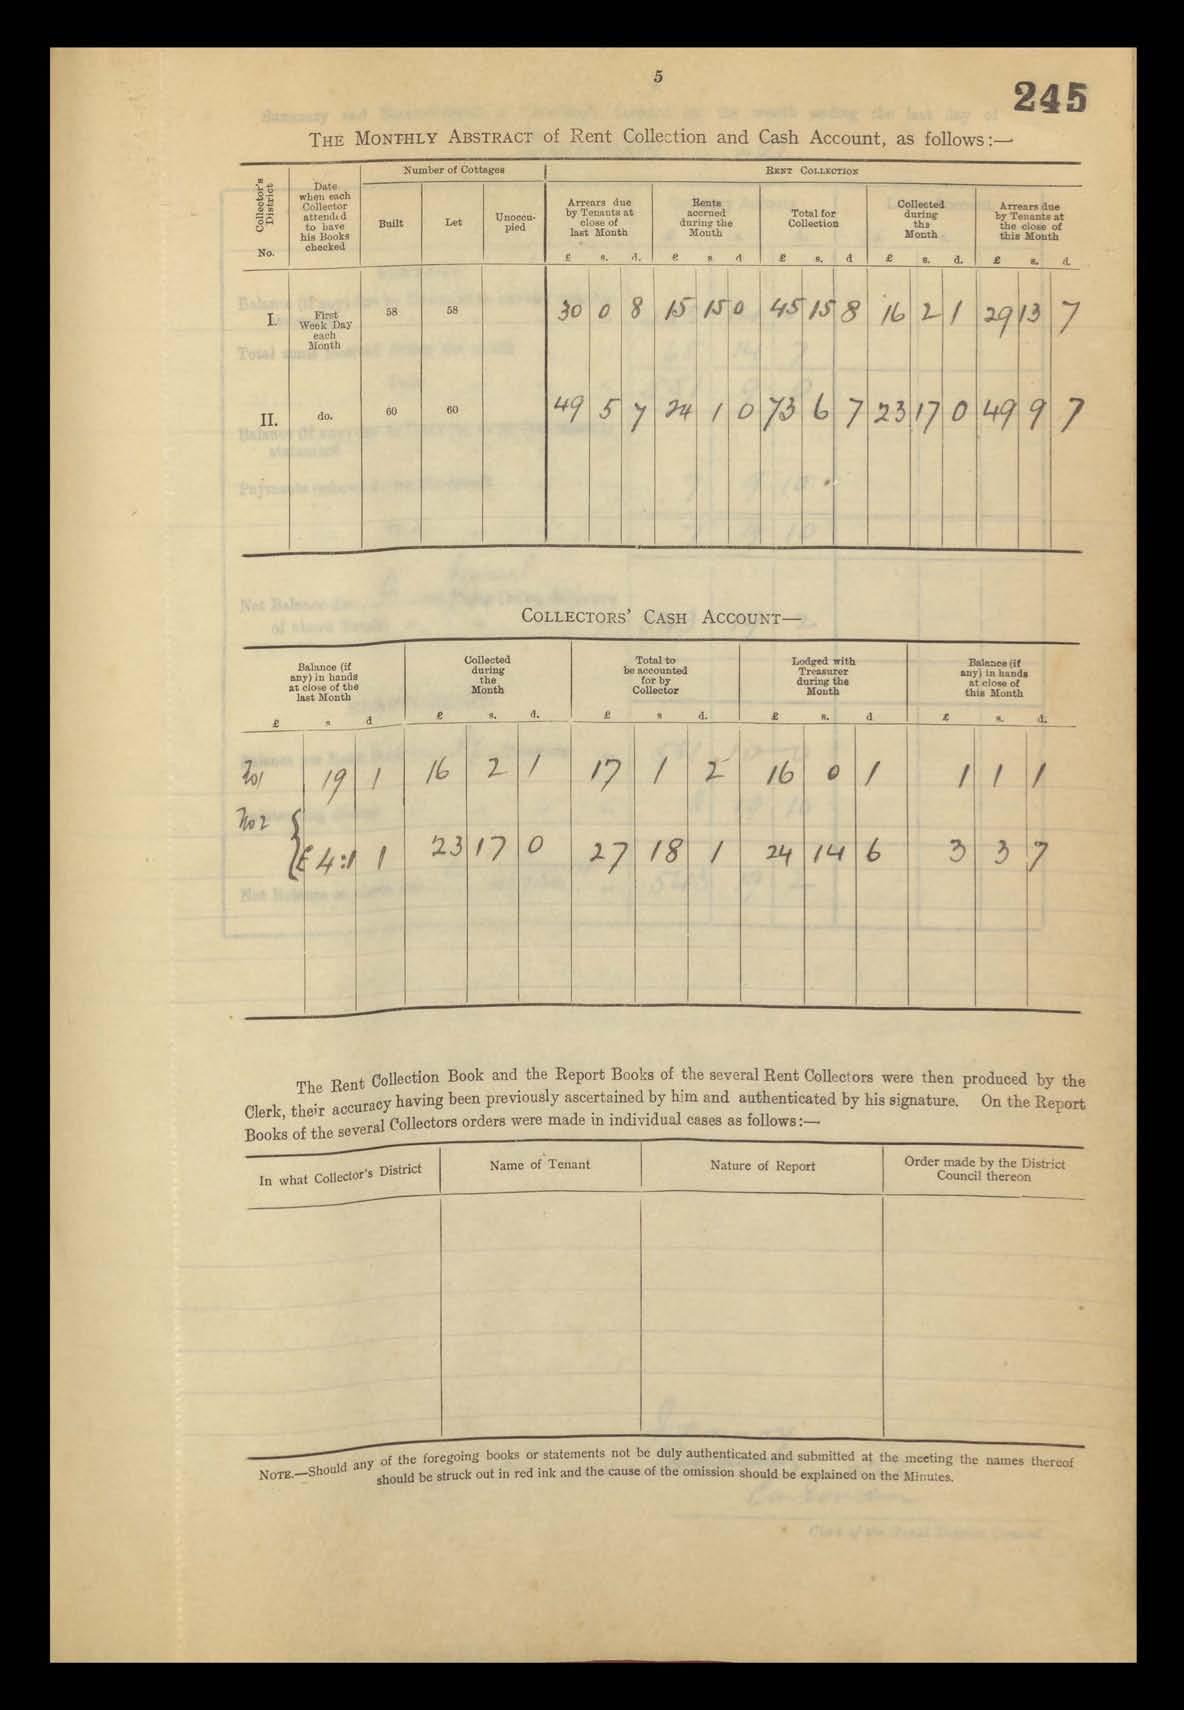 5
245
THE MONTHLY ABSTRACT of Rent Collection and Cash Account, as follows:—
Collector's District No.
Date when each Collector attended to have his Books checked
Number of Cottages
RENT COLLECTION
Built
Let
Unoccupied
Arrears due by Tenants at close of last Month
Rents accrued during the Month
Total for Collection
Collected during the Month
Arrears due by Tenants at the close of this Month
£ s. d. £ s d £ s. d £ s. d. £ s. d.
I. First Week Day each Month 58 58 30 0 8 15 15 0 45 15 8 16 2 1 29 13 7
II. do. 60 60 49 5 7 24 1 0 73 6 7 23 17 0 49 9 7
COLLECTORS' CASH ACCOUNT—
Balance (if any) in hands at close of the last Month
Collected during the Month
Total to be accounted for by Collector
Lodged with Treasurer during the Month
Balance (if any) in hands at close of this Month
£ s d £ s. d. £ s d. £ s. d £ s. d.
No1 19 1 16 2 1 17 1 2 16 0 1 1 1 1
No2 £4:1 1 23 17 0 27 18 1 24 14 6 3 3 7
The Rent Collection Book and the Report Books of the several Rent Collectors were then produced by the
Clerk, their accuracy having been previously ascertained by him and authenticated by his signature. On the Report
Books of the several Collectors orders were made in individual cases as follows:—
In what Collector's District
Name of Tenant
Nature of Report
Order made by the District Council thereon
NOTE.—Should any of the foregoing books or statements not be duly authenticated and submitted at the meeting the names thereof
should be struck out in red ink and the cause of the omission should be explained on the Minutes.